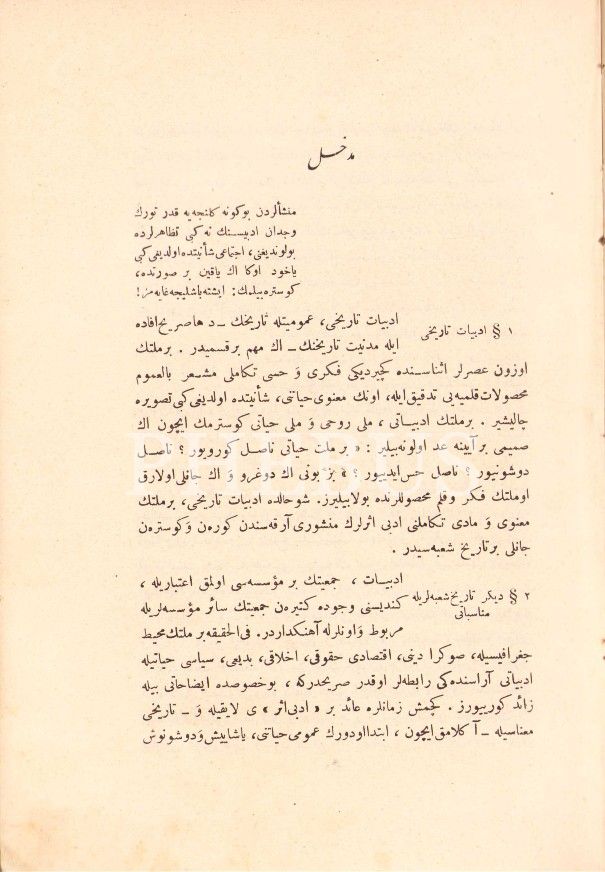 مدخل
منشألردن بوكونه كلنجه‌يه قدر تورك
وجدان ادبيسنك نه كبی تظاهرلرده
بولونديغنی، اجتماعی شأنيتده اولديغی كبی
ياخود اوكا اك ياقين بر صورتده،
كوستره بيلمك: ايشته باشليجه غايه مز!
۱ § ادبيات تاريخی
ادبيات تاريخی، عموميتله تاريخك ـ دها صريح افاده
ايله مدنيت تاريخنك ـ اك مهم برقسميدر . برملتك
اوزون عصرلر اثناسنده كچيرديكی فكری وَ حسی تكاملی مشعر بالعموم
محصولات قلميه‌يی تدقيق ايله، اونك معنوی حياتنی، شأنيتده اولديغی كبی تصويره
چاليشير . برملتك ادبياتی، ملی روحی وَ ملی حياتی كوسترمك ايچون اك
صميمی بر آيينه عد اولونه‌بيلير : « بر ملت حياتی ناصل كورويور ؟ ناصل
دوشونيور ؟ ناصل حس ايدييور ؟ » بز بونی اك دوغرو وَ اك جانلی اولارق
اوملتك فكر وقلم محصوللرنده بولابيليرز. شو حالده ادبيات تاريخی، برملتك
معنوی وَ مادی تكاملنی ادبی اثرلرك منشوری آرقه‌سندن كوره‌ن وَكوستره‌ن
جانلی برتاريخ شعبه‌سيدر .
۲ § ديكر تاريخ شعبه‌لريله
مناسباتی
ادبيات ، جمعيتك بر مؤسسه‌سی اولمق اعتباريله ،
كنديسنی وجوده كتيره‌ن جمعيتك سائر مؤسسه‌لريله
مربوط وَاونلرله آهنكداردر. فی‌الحقيقه برملتك محيط
جغرافيسيله، صوكرا دينی، اقتصادی حقوقی، اخلاقی، بديعی، سياسی حياتيله
ادبياتی آراسنده‌كی رابطه‌لر اوقدر صريحدركه ، بوخصوصده ايضاحاتی بيله
زائد كورييورز . كچمش زمانلره عائد بر « ادبی اثر » ی لايقيله وَ ـ تاريخی
معناسيله ـ آكلامق ايچون ، ابتدا اودورك عمومی حياتنی، ياشاييش وَدوشونوش